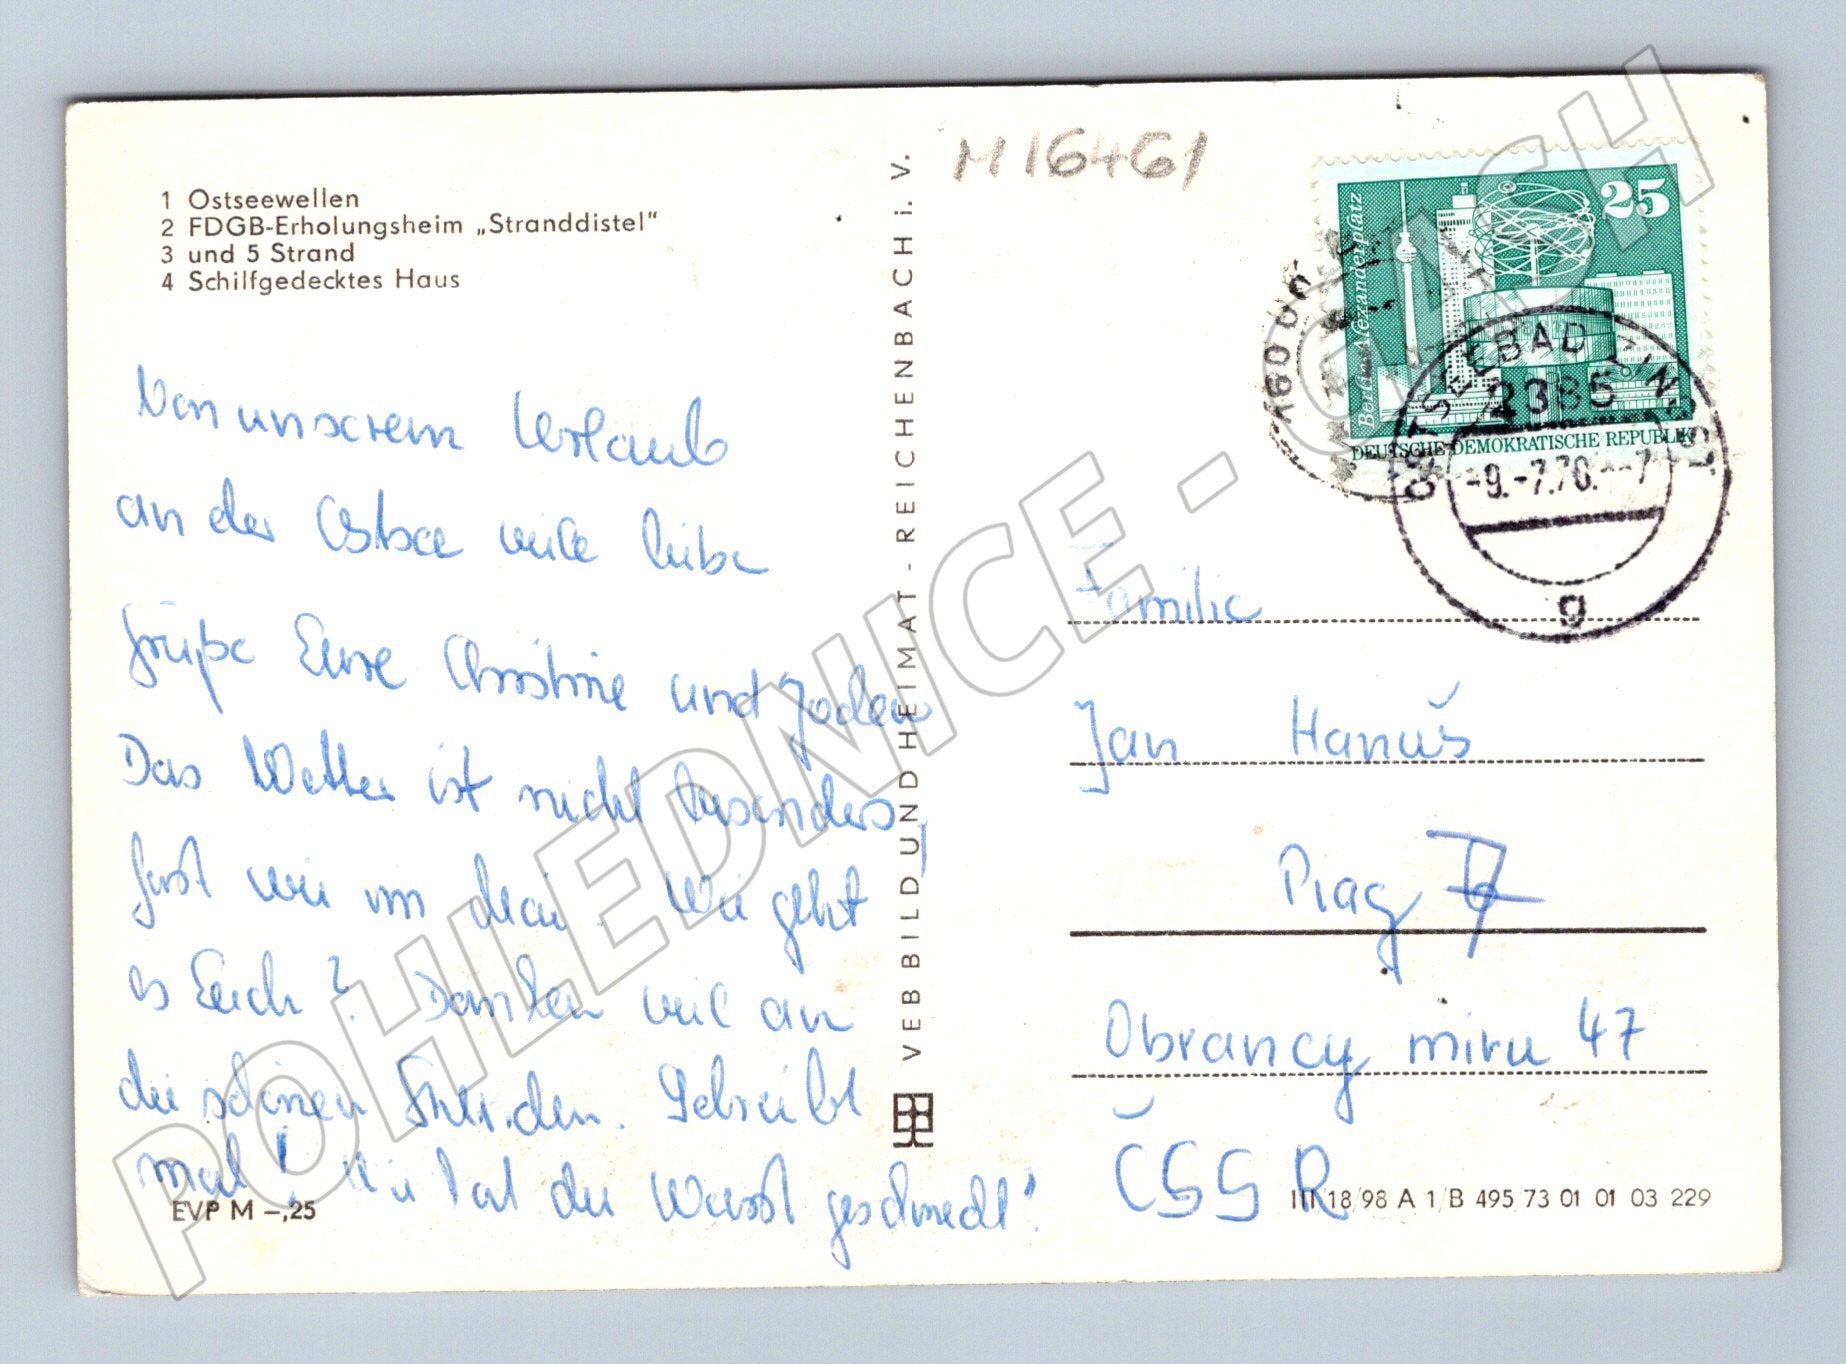 1 Ostseewellen
2 FDGB-Erholungsheim „Stranddistel"
3 und 5 Strand
4 Schilfgedecktes Haus
Von unserem Urlaub
an der Ostsee viele liebe
Grüße Eure Christine und
Das Wetter ist nicht besonders,
fast wie im Mai. Wie geht
es Euch? Danken viel an
die schönen Stunden. Schreibt
mal! Wie hat die Wurst geschmeckt?
EVP M –,25
VEB BILD UND HEIMAT - REICHENBACH i. V.
M 16461
25
Berlin-Alexanderplatz
DEUTSCHE DEMOKRATISCHE REPUBLIK
OSTSEEBAD ZINGST
2385
-9.-7.76.--7
g
Familie
Jan Hanuš
Prag 7
Obrancy miru 47
ČSSR
III 18/98 A 1/B 495/73 01 01 03 229
POHLEDNICE - CASH